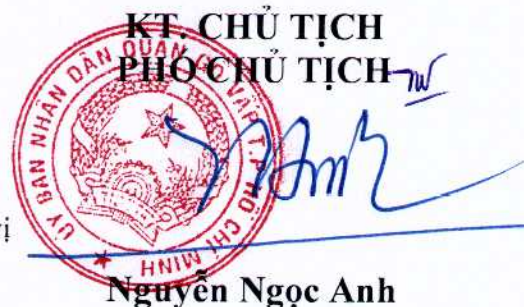 KT. CHỦ TỊCH
PHÓ CHỦ TỊCH
ỦY BAN NHÂN DÂN QUẬN GÒ VẤP T.P HỒ CHÍ MINH
vị
Nguyễn Ngọc Anh